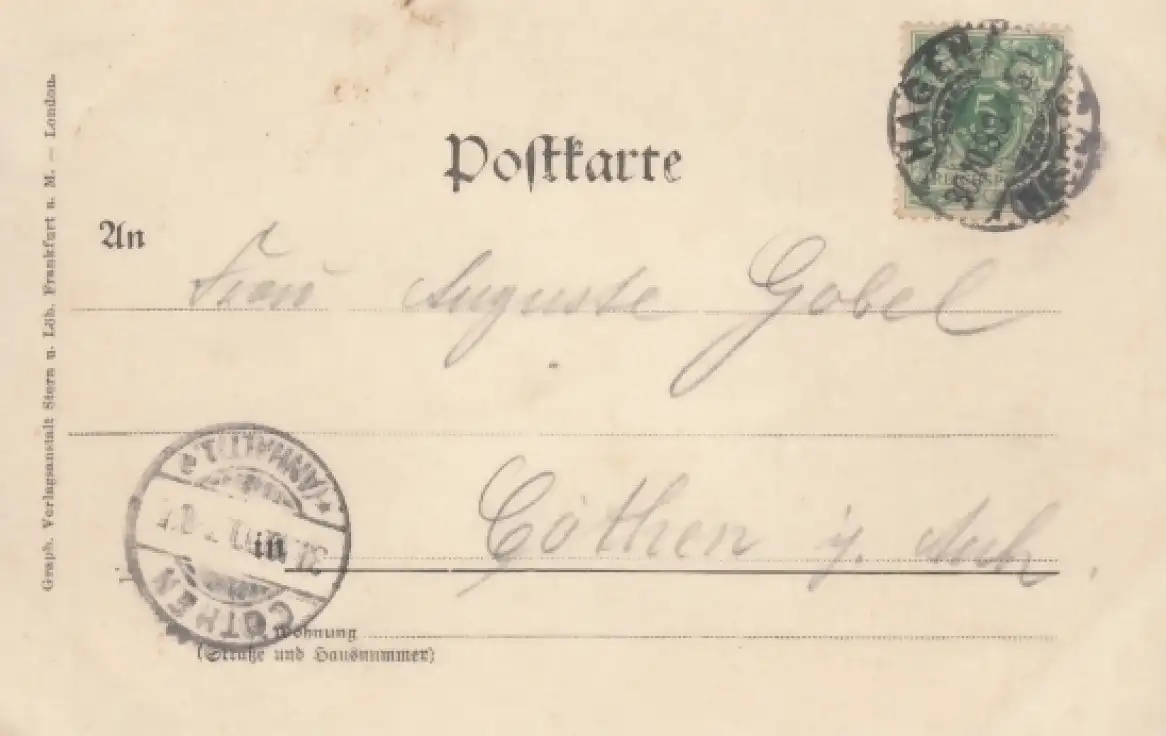 Postkarte
HAGEN
5
REICHSPOST
An
Frau Auguste Göbel
Cöthen i. Anh.
in
CÖTHEN
(ANHALT)
Wohnung
(Straße und Hausnummer)
Graph. Verlagsanstalt Stern u. Löb. Frankfurt a. M. – London.